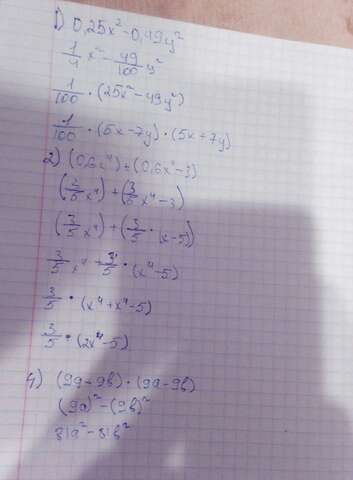 1) 0,25x² - 0,49y²
1/4 x² - 49/100 y²
1/100 · (25x² - 49y²)
1/100 · (5x - 7y) · (5x + 7y)
2) (0,6x⁴) + (0,6x⁴ - 3)
(3/5 x⁴) + (3/5 x⁴ - 3)
(3/5 x⁴) + (3/5 · (x - 5))
3/5 x⁴ + 3/5 · (x⁴ - 5)
3/5 · (x⁴ + x⁴ - 5)
3/5 · (2x⁴ - 5)
4) (9a + 9b) · (9a - 9b)
(9a)² - (9b)²
81a² - 81b²